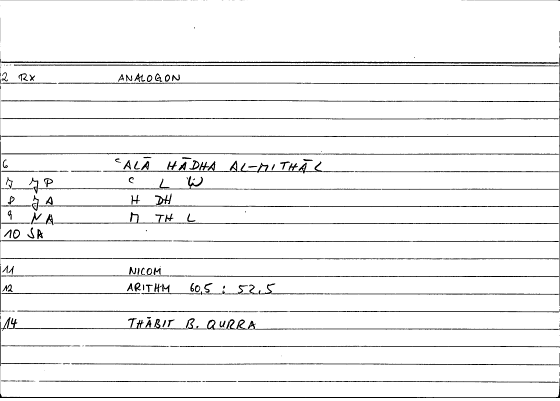 2 RX ANALOGON
6 ʿALĀ HĀDHA AL-MITHĀL
7 JP ʿ L W
8 JA H DH
9 NA M TH L
10 SA
11 NICOM
12 ARITHM 60,5 : 52.5
14 THĀBIT B. QURRA